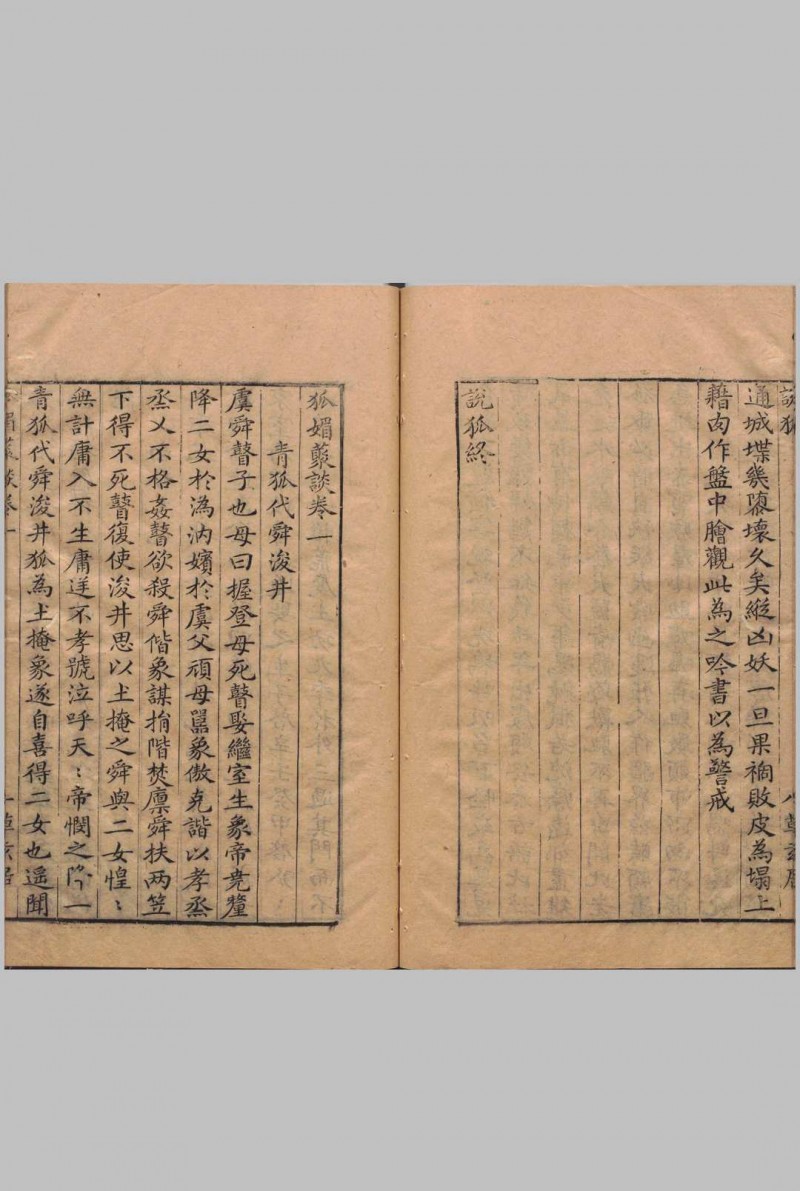 說狐 八 草玄居
通城堞幾隳壞久矣縱凶妖一旦果禍敗皮為塌上
藉肉作盤中膾觀此為之吟書以為警戒
說狐終
狐媚藂談卷一
青狐代舜浚井
虞舜瞽子也母曰握登母死瞽娶繼室生象帝堯釐
降二女於溈汭嬪於虞父頑母嚚象傲克諧以孝烝
烝乂不格姦瞽欲殺舜偕象謀捐階焚廩舜扶両笠
下得不死瞽復使浚井思以土掩之舜與二女惶〻
無計庸入不生庸逆不孝號泣呼天〻帝憫之降一
青狐代舜浚井狐為土掩象遂自喜得二女也遥聞
狐媚藂談卷一 一 草玄居